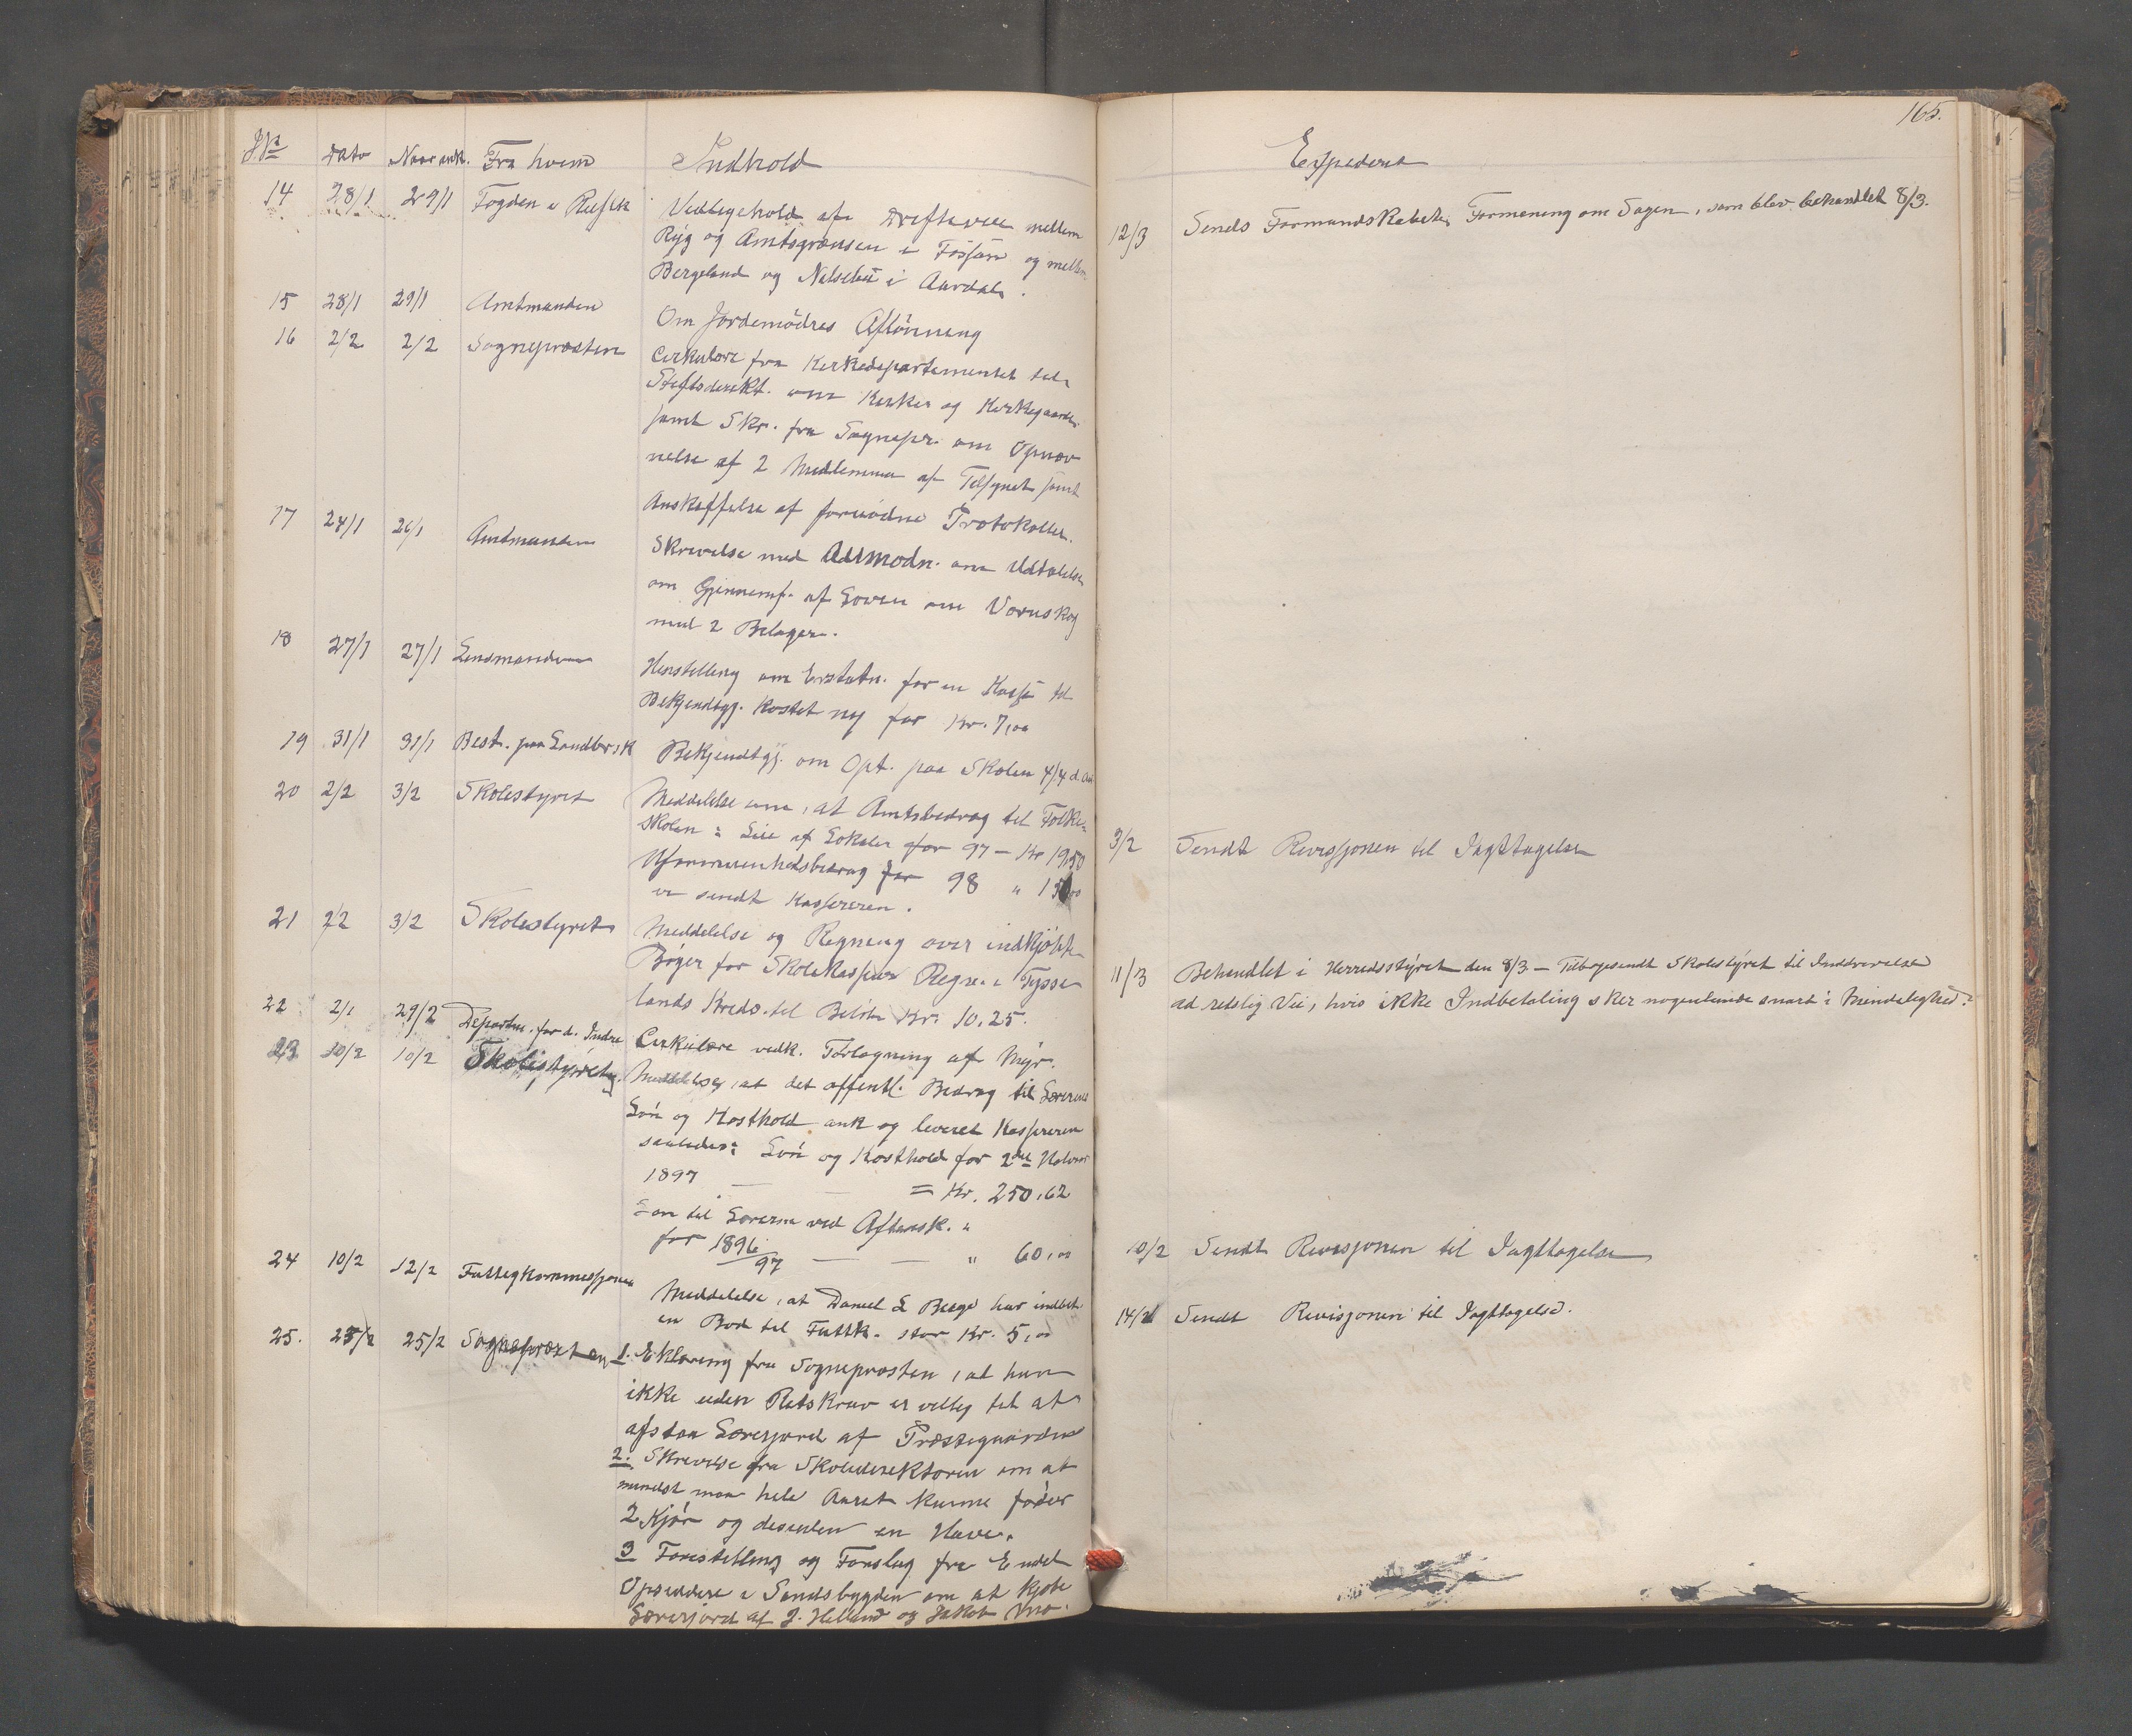 J.No Dato Naar ank. Fra hvem Indhold
14 28/1 29/1 Fogden i Ryfylk Vedligehold af Drifteveie mellem
Ryg og Amtsgrænsen i Fossan og mellem
Bergeland og Nelsebu i Aardal.
15 28/1 29/1 Amtmanden Om Jordemødres Aflønning
16 2/2 2/2 Sognepræsten Cirkulære fra Kirkedepartementet til
Stiftsdirekt. om Kirker og Kirkegaarde
samt Skr. fra Sognepr. om Opnæv
nelse af 2 Medlemmer af Tilsynet samt
Anskaffelse af fornødne Protokoller.
17 24/1 26/1 Amtmanden Skrivelse med Anmodn. om Udtalelse
om Gjennemf. af Loven om Vernskog
med 2 Belager.
18 27/1 27/1 Lensmanden Henstilling om Erstatn. for en Kasse til
Bekjendtgj. kostet ny for Kr. 7,00
19 31/1 31/1 Best. paa Landbrsk Bekjendtgj. om Opt. paa Skolen 4/4 d. Aar
20 2/2 3/2 Skolestyret Meddelelse om, at Amtsbidrag til Folke-
skolen: Leie af Lokaler for 97 — Kr 19,50
Uformuenhedsbidrag for 98 " 150,00
er sendt Kassereren.
21 2/2 3/2 Skolestyret Meddelelse og Regning over indkjøpte
Bøger for Skolekassens Regn. i Tysse
lands Kreds til Beløb Kr. 10,25.
22 2/1 29/2 Departm. for d. Indre Cirkulære vedk. Torlagning af Myr.
23 10/2 10/2 Skolestyret Meddelelse, at det offentl. Bidrag til Lærernes
Løn og Kosthold ank og leveret Kassereren
saaledes: Løn og Kosthold for 2det Halvaar
1897 — — = Kr. 250,62
Løn til Lærerne ved Aftensk. "
for 1896/97 — — " 60,00
24 10/2 12/2 Fattigkommissjonen Meddelelse, at Daniel L Berge har indbet.
en Bod til Fattk. stor Kr. 5,00
25. 25/2 25/2 Sognepræsten 1. Erklæring fra Sognepræsten, at han
ikke uden Retskrav er villig til at
afstaa Lærerjord af Præstegaarden
2. Skrivelse fra Skoledirektøren om at
mindst maa hele Aaret kunne fødes
2 Kjør og desuden en Have.
3 Forestilling og Forslag fra Endel
Opsiddere i Sandsbygden om at kjøbe
Lærerjord af J. Helland og Jakob Mo.
165.
Expederet
12/3 Sendt Formandskabets Formening om Sagen, som blev behandlet 8/3.
3/2 Sendt Revisjonen til Iagttagelse
11/3 Behandlet i Herredsstyret den 8/3 — Tilbagesendt Skolestyret til Inddrivelse
ad retslig Vei, hvis ikke Indbetaling sker nogenlunde snart i Mindelighed.
10/2 Sendt Revisjonen til Iagttagelse
14/2 Sendt Revisjonen til Iagttagelse.